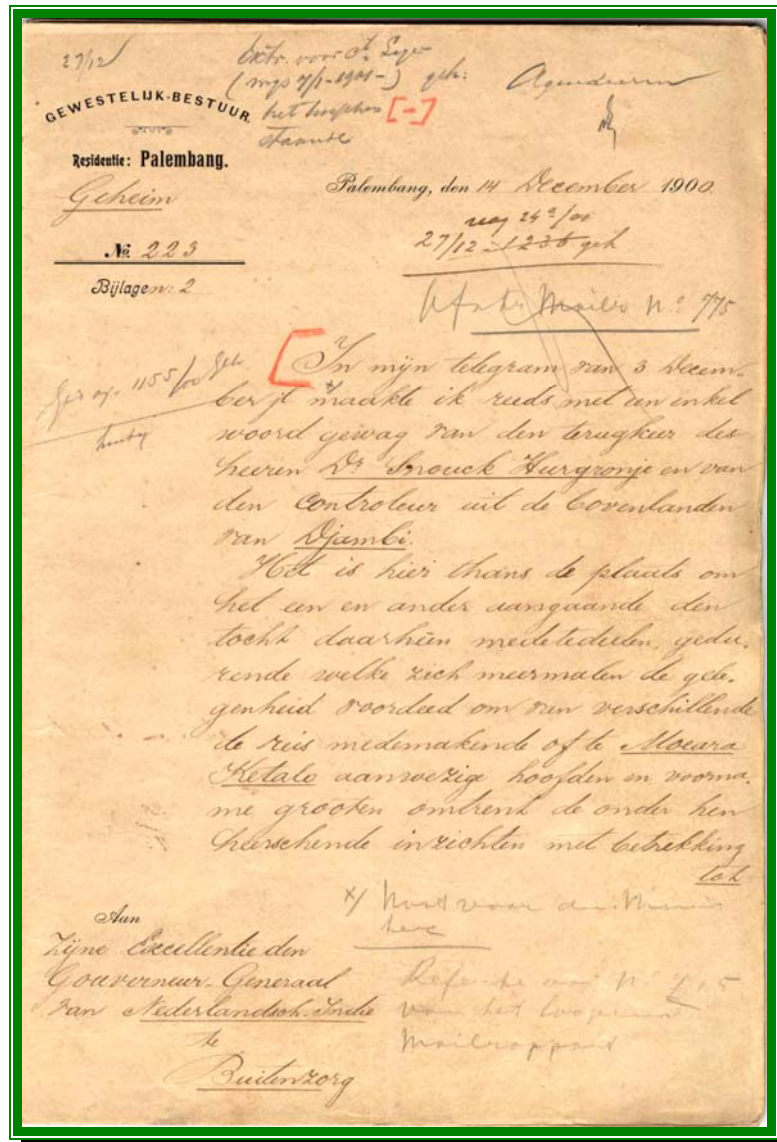 27/12
Extr. voor
(mgs 7/1-1901-) geh:
het
[-]
staande
Agendeeren
GEWESTELIJK-BESTUUR.
Residentie: Palembang.
Geheim
No. 223
Bijlagen: 2
Palembang, den 14 December 1900.
27/12 1236 geh
Mailr No 775
1155/00 Geh
In mijn telegram van 3 Decem-
ber jl maakte ik reeds met een enkel
woord gewag van den terugkeer des
heeren Dr Snouck Hurgronje en van
den Controleur uit de bovenlanden
van Djambi.
Het is hier thans de plaats om
het een en ander aangaande den
tocht daarheen medetedeelen, gedu-
rende welke zich meermalen de gele-
genheid voordeed om van verschillende
de reis medemakende of te Moeara
Ketalo aanwezige hoofden en voorna-
me grooten omtrent de onder hen
heerschende inzichten met betrekking
tot
Aan
Zijne Excellentie den
Gouverneur-Generaal
van Nederlandsch-Indie
te
Buitenzorg
x/
No 775
van het loopend
Mailrapport